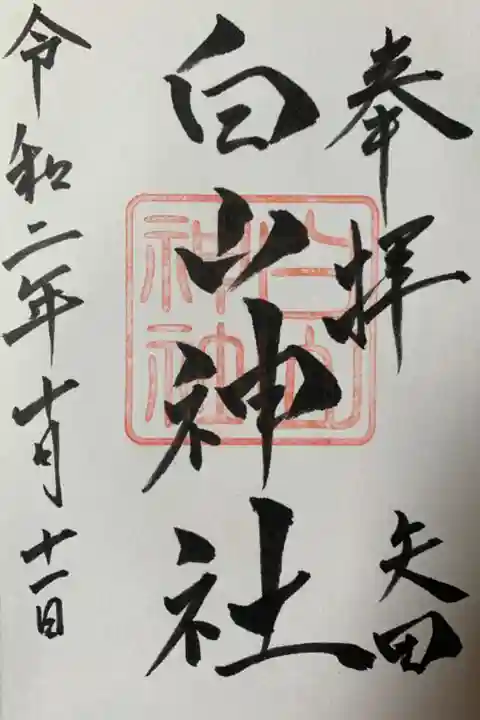 奉拝
矢田
白山神社
白山
神社
令和二年十月十一日